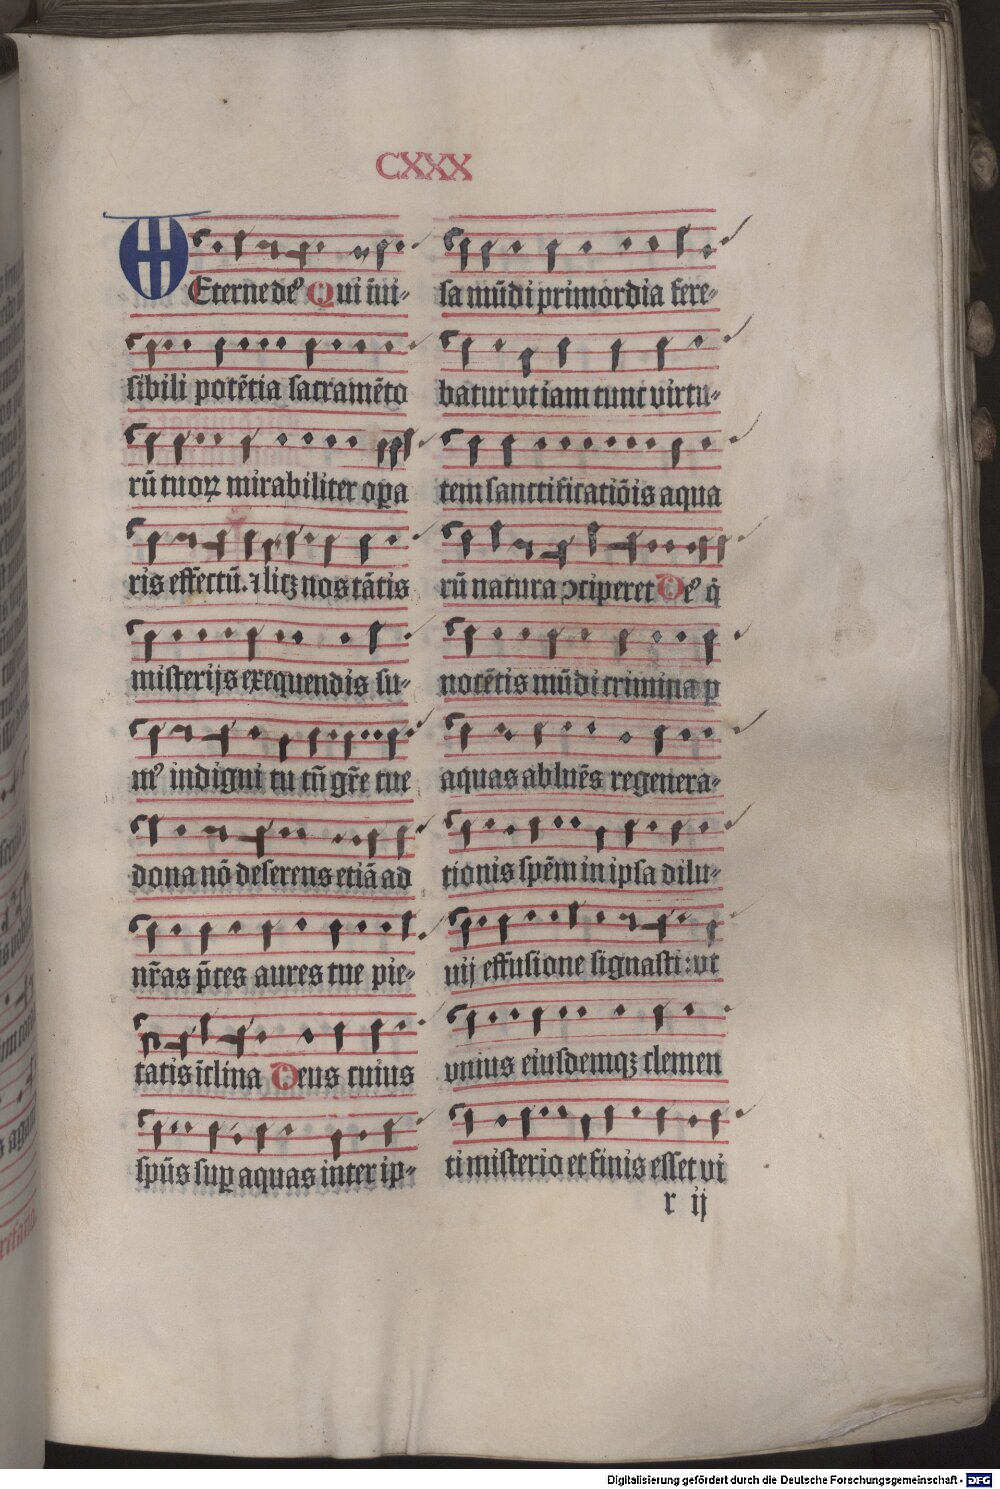 CXXX
Eterne deꝰ Qui īui-
sibili potētia sacramēto
rū tuoꝝ mirabiliter oꝑa
ris effectū. ⁊ licꝫ nos tātis
misterijs exequendis su-
mꝰ indigni tu tn̄ gr̄e tue
dona nō deserens etiā ad
nr̄as p̄ces aures tue pie-
tatis īclina Deus cuius
spūs suꝑ aquas inter ip-
sa mūdi primordia fere-
batur vt iam tunc virtu-
tem sanctificatiōis aqua
rū natura ꝯciperet Deꝰ q̇
nocētis mūdi crimina ꝑ
aquas abluēs regenera-
tionis spēm in ipsa dilu-
uij effusione signasti: vt
vnius eiusdemqꝫ elemen
ti misterio et finis esset vi
r ij
Digitalisierung gefördert durch die Deutsche Forschungsgemeinschaft - DFG